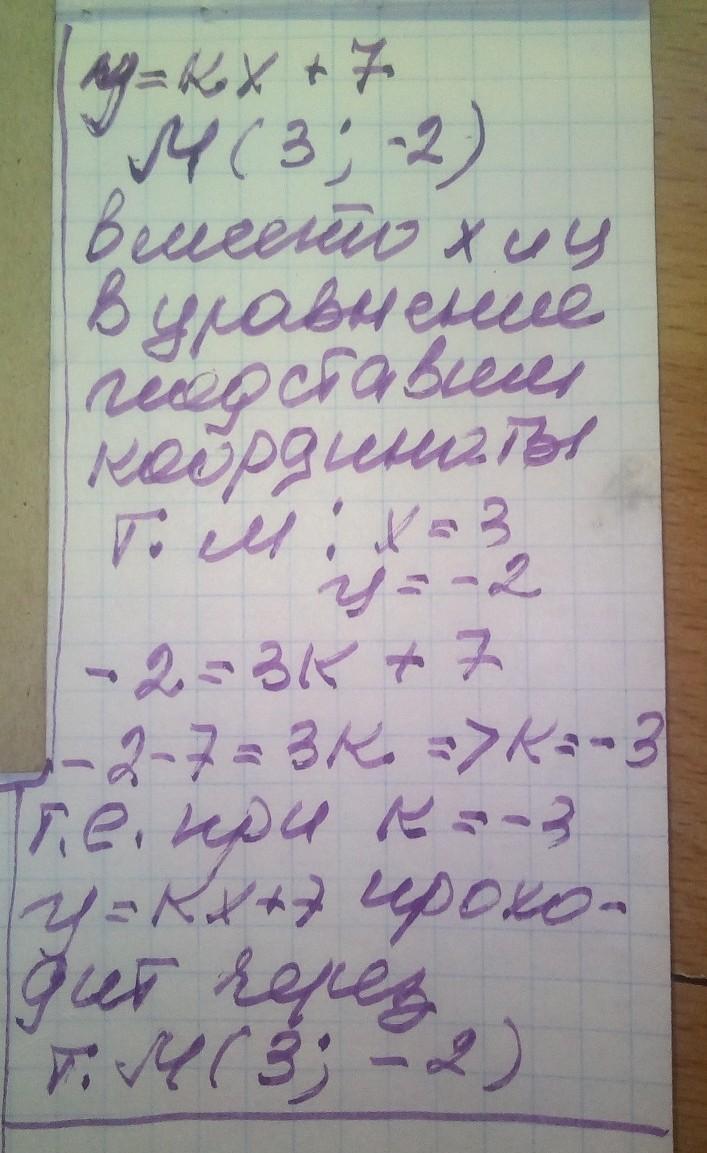 y=кx+7
М(3; -2)
вместо х и у
в уравнение
подставим
координаты
т. М: х=3
у=-2
-2=3к+7
-2-7=3к=>к=-3
т.е. при к=-3
у=кх+7 прохо-
дит через
т. М(3; -2)